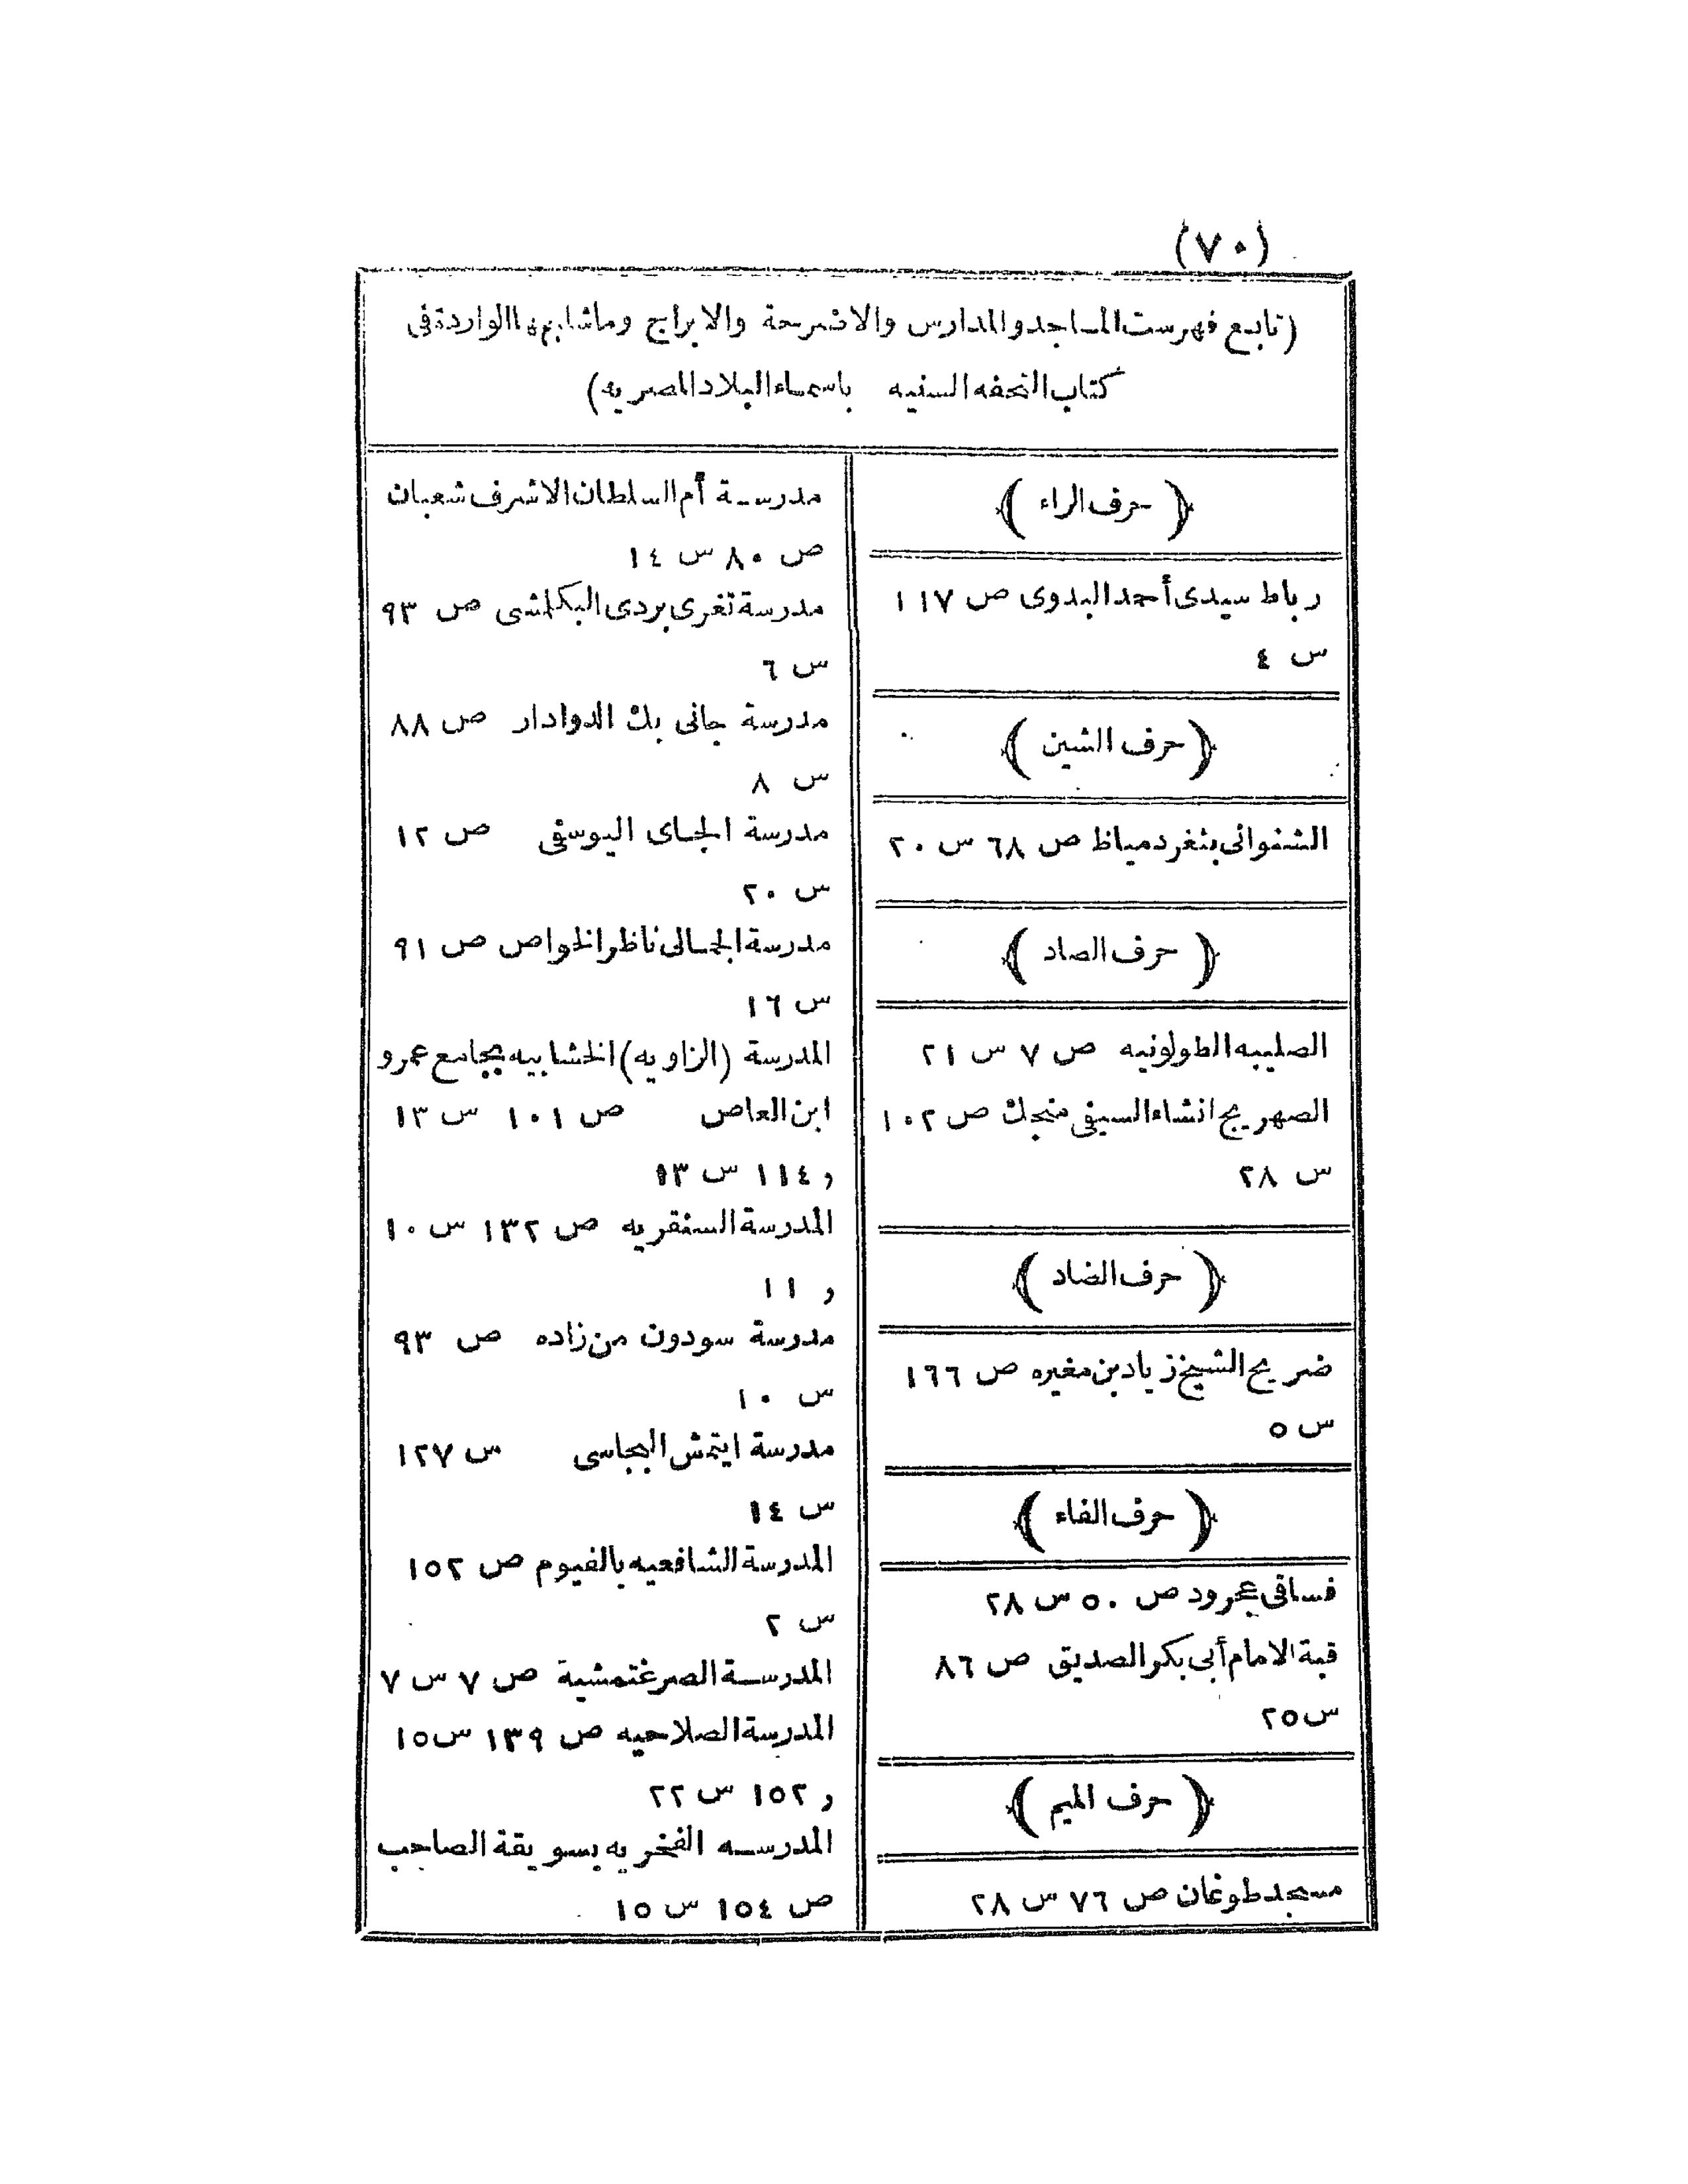 (٧٠)
(تابع فهرست المساجد والمدارس والاضرحة والابراج وما شابهها الواردة فى
كتاب التحفه السنيه باسماء البلاد المصريه)
﴿ حرف الراء ﴾
رباط سيدى أحمد البدوى ص ١١٧
س ٤
﴿ حرف الشين ﴾
الشنوانى بثغر دمياط ص ٦٨ س ٢٠
﴿ حرف الصاد ﴾
الصليبه الطولونيه ص ٧ س ٢١
الصهريج انشاء السيفى منجك ص ١٠٢
س ٢٨
﴿ حرف الضاد ﴾
ضريح الشيخ زياد بن مغيره ص ١٦٦
س ٥
﴿ حرف الفاء ﴾
فساقى عجرود ص ٥٠ س ٢٨
قبة الامام أبى بكر الصديق ص ٨٦
س ٢٥
﴿ حرف الميم ﴾
مسجد طوغان ص ٧٦ س ٢٨
مدرسة أم السلطان الاشرف شعبان
ص ٨٠ س ١٤
مدرسة تغرى بردى البكلمشى ص ٩٣
س ٦
مدرسة جانى بك الدوادار ص ٨٨
س ٨
مدرسة الجاى اليوسفى ص ١٢
س ٢٠
مدرسة الجمالى ناظر الخواص ص ٩١
س ١٦
المدرسة (الزاويه) الخشابيه بجامع عمرو
ابن العاص ص ١٠١ س ١٣
و ١١٤ س ١٣
المدرسة السنقريه ص ١٣٢ س ١٠
و ١١
مدرسة سودون من زاده ص ٩٣
س ١٠
مدرسة ايتمش البجاسى س ١٢٧
س ١٤
المدرسة الشافعيه بالفيوم ص ١٥٢
س ٢
المدرسة الصرغتمشية ص ٧ س ٧
المدرسة الصلاحيه ص ١٣٩ س ١٥
و ١٥٢ س ٢٢
المدرسه الفخريه بسويقة الصاحب
ص ١٥٤ س ١٥